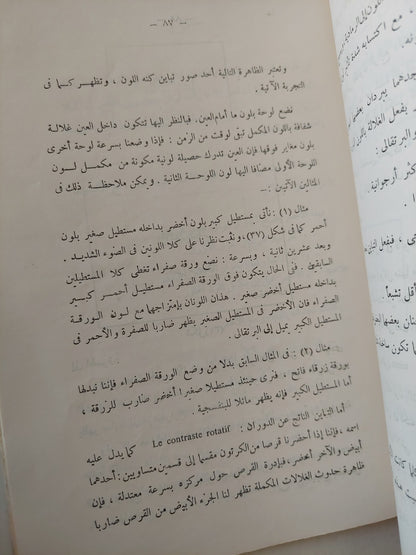 — ٨٧ —
وتعتبر الظاهرة التالية أحد صور تباين كنه اللون ، وتظهر كما فى
التجربة الآتية .
نضع لوحة بلون ما أمام العين . فبالنظر اليها تتكون داخل العين غلالة
شفافة باللون المكمل تبقى لوقت من الزمن : فإذا وضعنا بسرعة لوحة أخرى
بلون مغاير فوقها فإن العين تدرك حصيلة لونية مكونة من مكمل لون
اللوحة الأولى مضافا اليها لون اللوحة الثانية . ويمكن ملاحظة ذلك فى
المثالين الآتيين :ـ
مثال (١) : نأتى بمستطيل كبير بلون أخضر بداخله مستطيل صغير بلون
أحمر كما فى شكل (٣٧) . ونثبت نظرنا على كلا اللونين فى الضوء الشديد .
وبعد عشرين ثانية ، وبسرعة : نضع ورقة صفراء تغطى كلا المستطيلين
السابقين . فنى الحال يتكون فوق الورقة الصفراء مستطيل أحمر كبير
بداخله مستطيل أخضر صغير . هذان اللونان بإمتزاجهما مع لون الورقة
الصفراء فان الأخضر فى المستطيل الصغير يظهر ضاربا للصفرة والأحمر فى
المستطيل الكبير يميل إلى البرتقالى .
مثال (٢) : فى المثال السابق بدلا من وضع الورقة الصفراء فإننا نبدلها
بورقة زرقاء فاتح ، فنرى حينئذ مستطيلا صغيرا أخضر ضارب للزرقة ،
أما المستطيل الكبير فإنه يظهر مائلا للبنفسجية .
أما التباين الناتج عن الدوران : Le contraste rotatif كما يدل عليه
اسمه ، فإننا إذا أحضرنا قرصا من الكرتون مقسما إلى قسمين متساويين : أحدهما
أبيض والآخر أخضر ، فبإدرة القرص حول مركزه بسرعة معتدلة ، فإن
ظاهرة حدوث الغلالات المكملة تظهر لنا الجزء الأبيض من القرص ضاربا